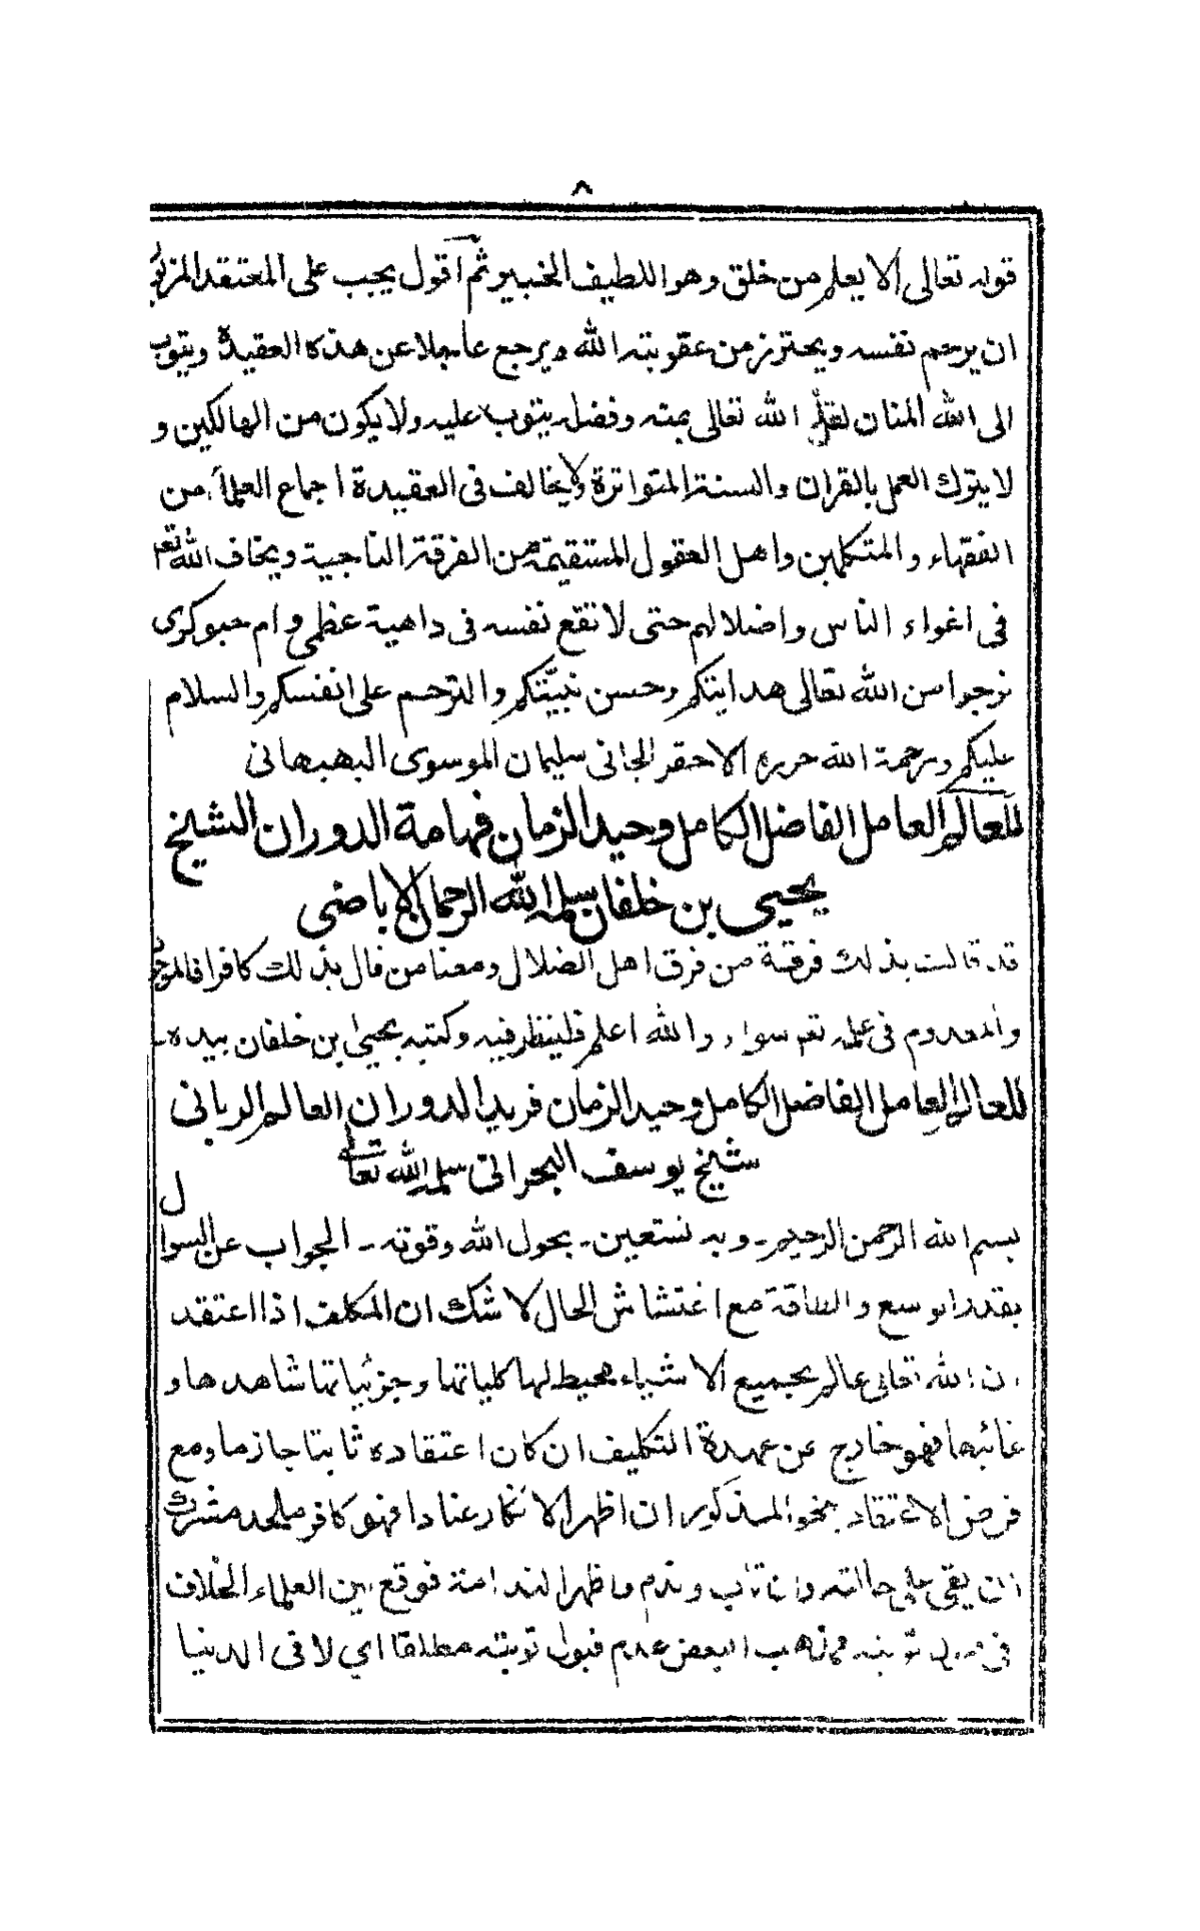 ٨
قوله تعالى الا يعلم من خلق وهو اللطيف الخبير ثم اقول يجب على المعتقد المزبور
ان يرحم نفسه ويحترز من عقوبته الله ويرجع عاجلا عن هذه العقيدة ويتوب
الى الله المنان لعل الله تعالى بمنه وفضله يتوب عليه ولا يكون من الهالكين و
لا يترك العمل بالقران والسنة المتواترة ولا يخالف فى العقيدة اجماع العلماء من
الفقهاء والمتكلمين واهل العقول المستقيمة من الفرقة الناجية ويخاف الله تعر
فى اغواء الناس واضلالهم حتى لا تقع نفسه فى داهية عظمى وام حبوكرى
نرجوا من الله تعالى هدايتكم وحسن نيتكم والترحم على انفسكم والسلام
عليكم ورحمة الله حرره الاحقر الجانى سليمان الموسوى البهبهانى
للعالم العامل الفاضل الكامل وحيد الزمان فهامة الدوران الشيخ
يحيى بن خلفان سلمه الله الرحمان الاباضى
قد قالت بذلك فرقة من فرق اهل الضلال ومعنا من قال بذلك كافرا فالموجود
والمعدوم فى علمه تعر سواء والله اعلم فلينظر فيه وكتبه يحيى بن خلفان بيده
للعالم العامل الفاضل الكامل وحيد الزمان فريد الدوران العالم الربانى
شيخ يوسف البحرانى سلمه الله تعالى
بسم الله الرحمن الرحيم ـ وبه نستعين ـ بحول الله وقوته ـ الجواب عن السوال
بقدر الوسع والطاقة مع اغتشاش الحال لا شك ان المكلف اذا اعتقد
ان الله تعالى عالم بجميع الاشياء محيط لها كلياتها وجزئياتها شاهدها و
غائبها فهو خارج عن عهدة التكليف ان كان اعتقاده ثابتا جازما ومع
فرض الاعتقاد بنحو المذكور ان اظهر الانكار عنادا فهو كافر ملحد مشرك
ان بقى على حالته وان تاب وندم واظهر الندامة فوقع بين العلماء الخلاف
فى قبول توبته فمذهب البعض عدم قبول توبته مطلقا اى لا فى الدنيا